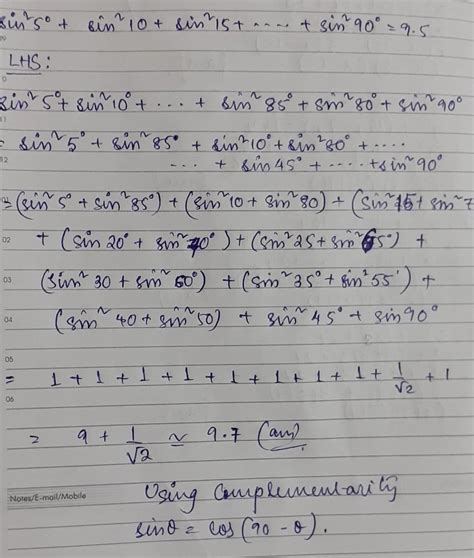 sin²5° + sin²10 + sin²15 + ..... + sin²90° = 9.5
LHS:
sin²5° + sin²10° + ... + sin²85° + sin²80° + sin²90°
= sin²5° + sin²85° + sin²10° + sin²80° + ....
... + sin45° + .... + sin²90°
= (sin²5° + sin²85°) + (sin²10 + sin²80) + (sin²15 + sin²7
+ (sin 20° + sin²70°) + (sin²25 + sin²65°) +
(sin²30 + sin²60°) + (sin²35° + sin²55°) +
(sin²40 + sin²50) + sin²45° + sin90°
= 1 + 1 + 1 + 1 + 1 + 1 + 1 + 1 + 1 + 1/√2 + 1
= 9 + 1/√2 ≃ 9.7 (ans)
Notes/E-mail/Mobile
Using Complementarity
sinθ = cos(90 - θ).